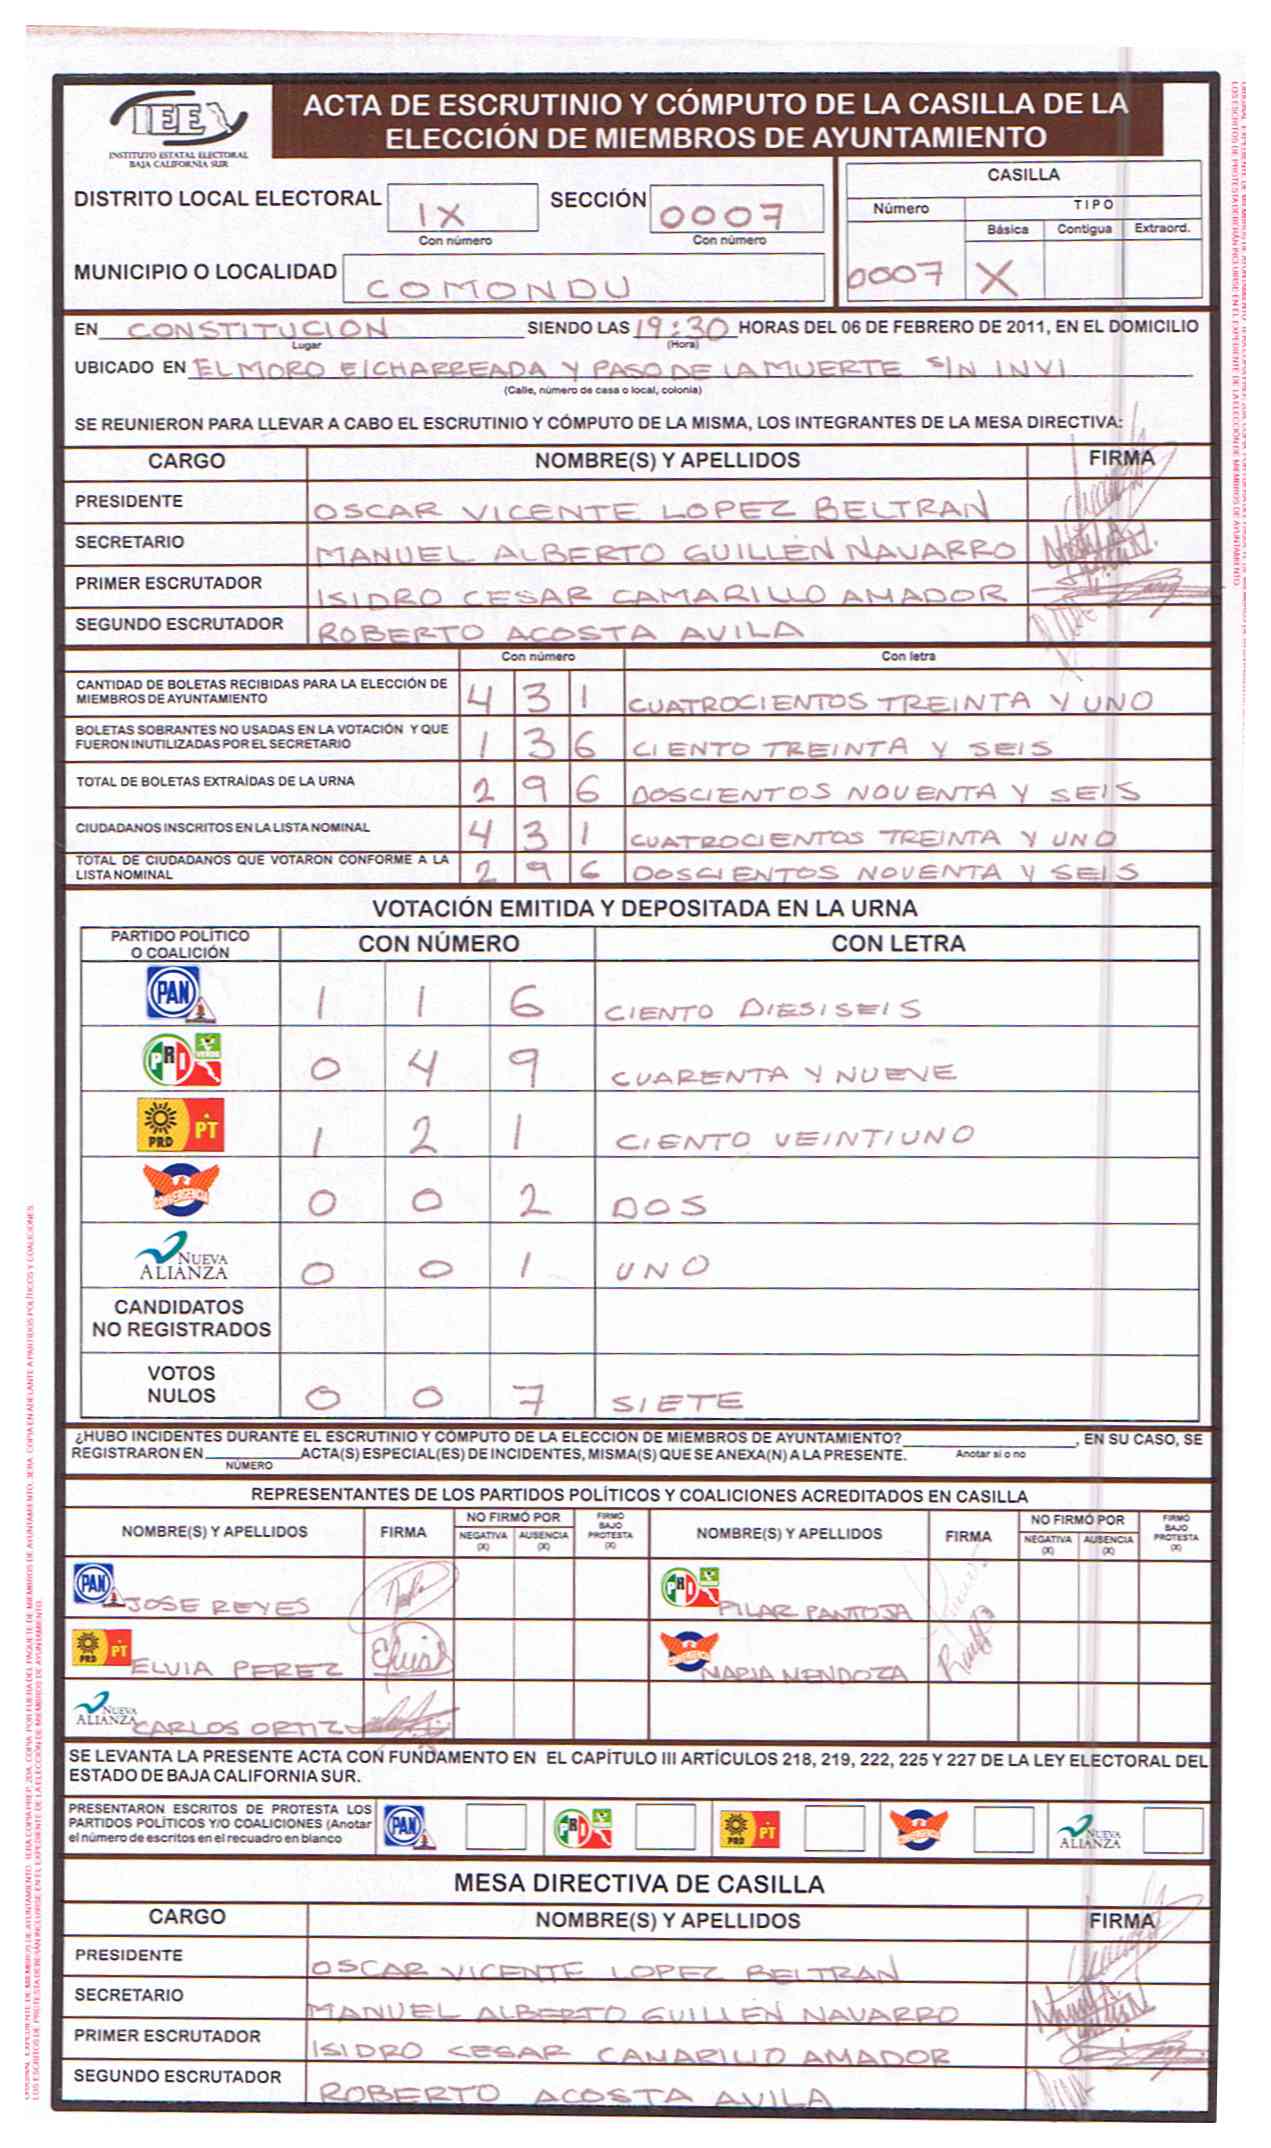 IEE
INSTITUTO ESTATAL ELECTORAL
BAJA CALIFORNIA SUR
ACTA DE ESCRUTINIO Y CÓMPUTO DE LA CASILLA DE LA
ELECCIÓN DE MIEMBROS DE AYUNTAMIENTO
DISTRITO LOCAL ELECTORAL IX SECCIÓN 0007
Con número Con número
MUNICIPIO O LOCALIDAD COMONDU
CASILLA
Número TIPO
Básica Contigua Extraord.
0007 X
EN CONSTITUCION SIENDO LAS 19:30 HORAS DEL 06 DE FEBRERO DE 2011, EN EL DOMICILIO
Lugar (Hora)
UBICADO EN EL MORO E/CHARREADA Y PASO DE LA MUERTE S/N INVI
(Calle, número de casa o local, colonia)
SE REUNIERON PARA LLEVAR A CABO EL ESCRUTINIO Y CÓMPUTO DE LA MISMA, LOS INTEGRANTES DE LA MESA DIRECTIVA:
CARGO NOMBRE(S) Y APELLIDOS FIRMA
PRESIDENTE OSCAR VICENTE LOPEZ BELTRAN
SECRETARIO MANUEL ALBERTO GUILLEN NAVARRO
PRIMER ESCRUTADOR ISIDRO CESAR CAMARILLO AMADOR
SEGUNDO ESCRUTADOR ROBERTO ACOSTA AVILA
Con número Con letra
CANTIDAD DE BOLETAS RECIBIDAS PARA LA ELECCIÓN DE
MIEMBROS DE AYUNTAMIENTO 4 3 1 CUATROCIENTOS TREINTA Y UNO
BOLETAS SOBRANTES NO USADAS EN LA VOTACIÓN Y QUE
FUERON INUTILIZADAS POR EL SECRETARIO 1 3 6 CIENTO TREINTA Y SEIS
TOTAL DE BOLETAS EXTRAÍDAS DE LA URNA 2 9 6 DOSCIENTOS NOVENTA Y SEIS
CIUDADANOS INSCRITOS EN LA LISTA NOMINAL 4 3 1 CUATROCIENTOS TREINTA Y UNO
TOTAL DE CIUDADANOS QUE VOTARON CONFORME A LA
LISTA NOMINAL 2 9 6 DOSCIENTOS NOVENTA Y SEIS
VOTACIÓN EMITIDA Y DEPOSITADA EN LA URNA
PARTIDO POLÍTICO
O COALICIÓN CON NÚMERO CON LETRA
PAN 1 1 6 CIENTO DIESISEIS
PRI VERDE 0 4 9 CUARENTA Y NUEVE
PRD PT 1 2 1 CIENTO VEINTIUNO
CONVERGENCIA 0 0 2 DOS
NUEVA ALIANZA 0 0 1 UNO
CANDIDATOS
NO REGISTRADOS
VOTOS
NULOS 0 0 7 SIETE
¿HUBO INCIDENTES DURANTE EL ESCRUTINIO Y CÓMPUTO DE LA ELECCIÓN DE MIEMBROS DE AYUNTAMIENTO? , EN SU CASO, SE
REGISTRARON EN ACTA(S) ESPECIAL(ES) DE INCIDENTES, MISMA(S) QUE SE ANEXA(N) A LA PRESENTE. Anotar sí o no
NÚMERO
REPRESENTANTES DE LOS PARTIDOS POLÍTICOS Y COALICIONES ACREDITADOS EN CASILLA
NOMBRE(S) Y APELLIDOS FIRMA NO FIRMÓ POR NEGATIVA (X) AUSENCIA (X) FIRMÓ BAJO PROTESTA (X) NOMBRE(S) Y APELLIDOS FIRMA NO FIRMÓ POR NEGATIVA (X) AUSENCIA (X) FIRMÓ BAJO PROTESTA (X)
PAN JOSE REYES PRI PILAR PANTOJA
PRD PT ELVIA PEREZ CONVERGENCIA MARIA MENDOZA
NUEVA ALIANZA CARLOS ORTIZ
SE LEVANTA LA PRESENTE ACTA CON FUNDAMENTO EN EL CAPÍTULO III ARTÍCULOS 218, 219, 222, 225 Y 227 DE LA LEY ELECTORAL DEL
ESTADO DE BAJA CALIFORNIA SUR.
PRESENTARON ESCRITOS DE PROTESTA LOS
PARTIDOS POLÍTICOS Y/O COALICIONES (Anotar
el número de escritos en el recuadro en blanco
PAN PRI PRD PT CONVERGENCIA NUEVA ALIANZA
MESA DIRECTIVA DE CASILLA
CARGO NOMBRE(S) Y APELLIDOS FIRMA
PRESIDENTE OSCAR VICENTE LOPEZ BELTRAN
SECRETARIO MANUEL ALBERTO GUILLEN NAVARRO
PRIMER ESCRUTADOR ISIDRO CESAR CAMARILLO AMADOR
SEGUNDO ESCRUTADOR ROBERTO ACOSTA AVILA